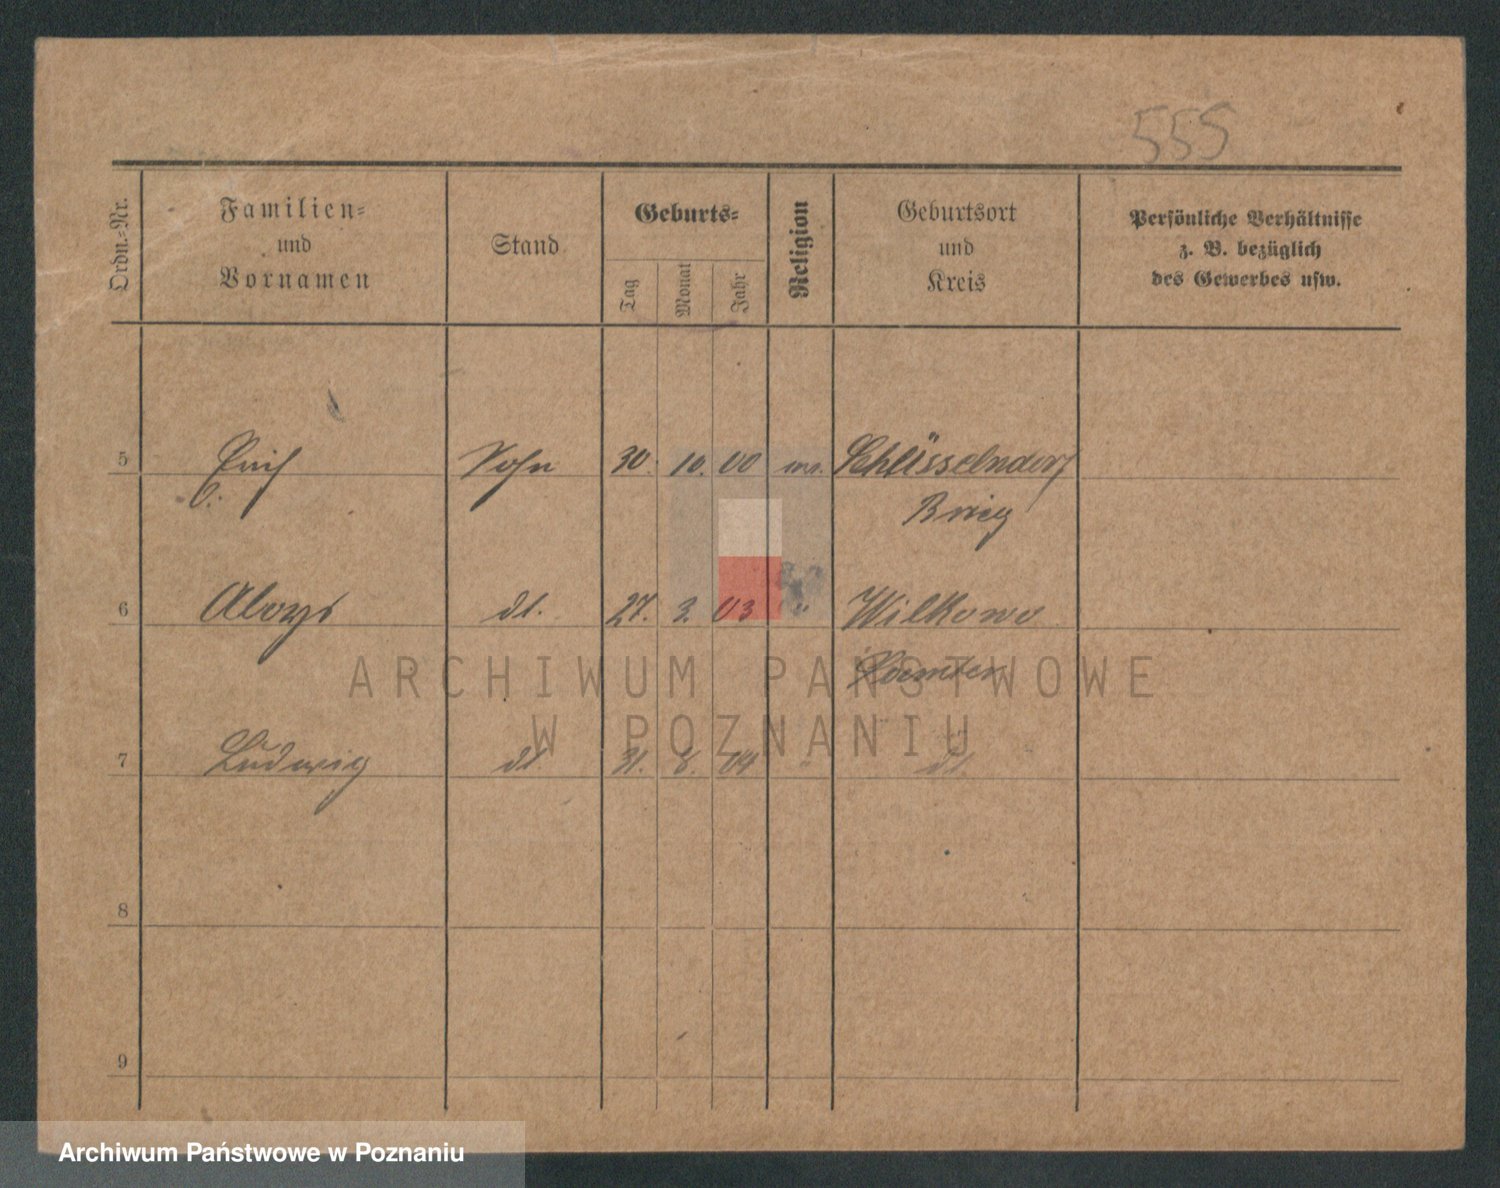 555
Ordn.-Nr.
Familien-
und
Vornamen
Stand
Geburts-
Tag
Monat
Jahr
Religion
Geburtsort
und
Kreis
Persönliche Verhältnisse
z. B. bezüglich
des Gewerbes usw.
5 Erich Sohn 30. 10. 00 Schlüsselndorf
Brieg
6 Aloys dt. 27. 3. 03 " Wilkowo
Samter
ARCHIWUM PAŃSTWOWE
W POZNANIU
7 Ludwig dt. 31. 8. 04 " dt.
8
9
Archiwum Państwowe w Poznaniu